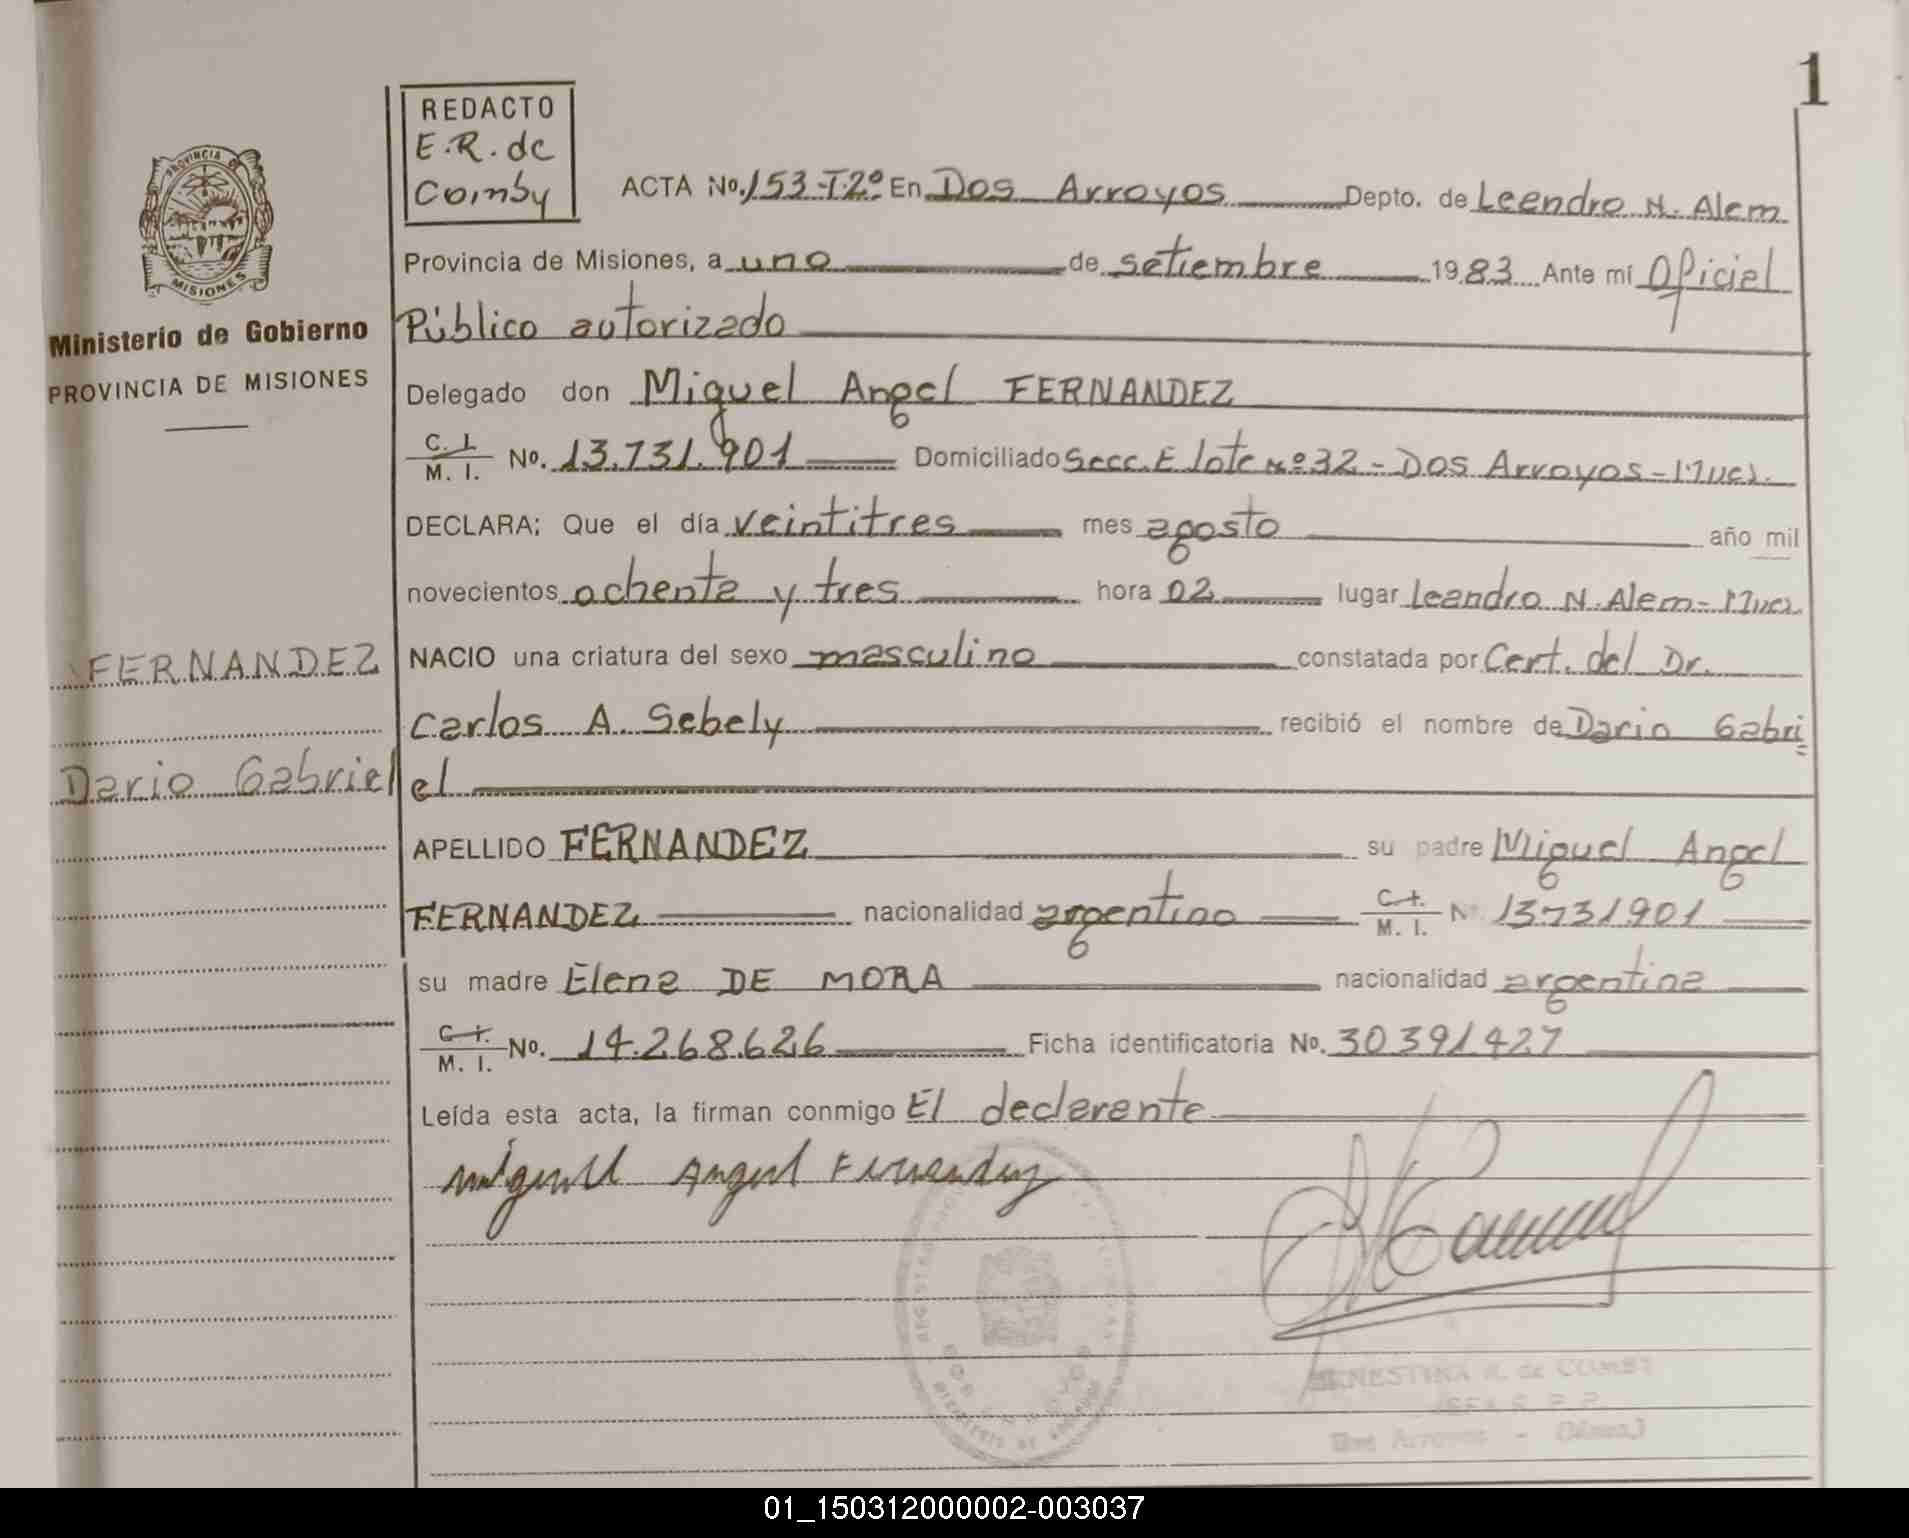 1
REDACTO
E.R. de
Coimby
PROVINCIA DE
MISIONES
Ministerio de Gobierno
PROVINCIA DE MISIONES
ACTA No. 153-T2º En Dos Arroyos Depto. de Leandro N. Alem
Provincia de Misiones, a uno de setiembre 1983 Ante mí Oficial
Público autorizado
Delegado don Miguel Angel FERNANDEZ
C. I. M. I. No. 13.731.901 Domiciliado Secc. E lote Nº 32 - Dos Arroyos -
DECLARA: Que el día veintitres mes agosto año mil
novecientos ochenta y tres hora 02 lugar Leandro N. Alem -
NACIO una criatura del sexo masculino constatada por Cert. del Dr.
Carlos A. Sebely recibió el nombre de Dario Gabri=
el
FERNANDEZ
Dario Gabriel
APELLIDO FERNANDEZ su padre Miguel Angel
FERNANDEZ nacionalidad argentino C. I. M. I. No. 13731901
su madre Elena DE MORA nacionalidad argentina
C. I. M. I. No. 14.268.626 Ficha identificatoria No. 30391427
Leída esta acta, la firman conmigo El declarante
Miguel Angel Fernandez
ERNESTINA R. de COIMBY
Dos Arroyos - (Mnes.)
01_150312000002-003037